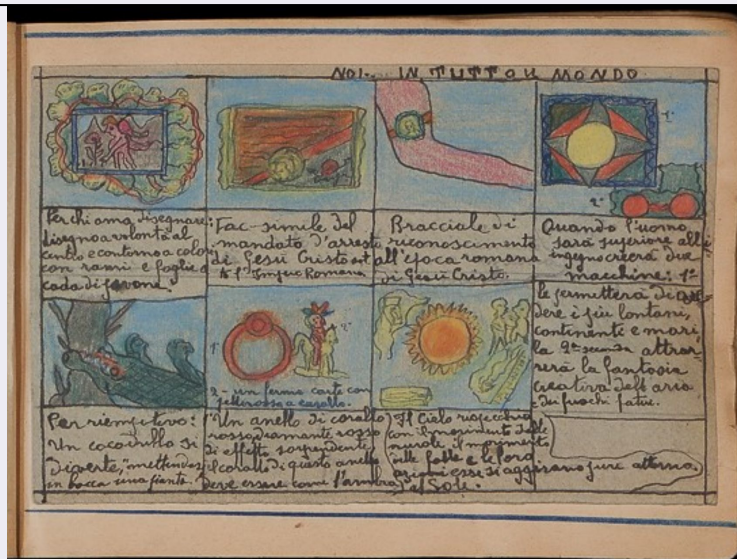 NOI... IN TUTTO IL MONDO
Per chi ama disegnare:
disegno a volontà al
centro e contorno a colori
con rami e foglie a
coda di pavone.
Fac-simile del
mandato d'arresto
di Gesù Cristo
Impero Romano
Bracciale di
riconoscimento
all'epoca romana
di Gesù Cristo.
Quando l'uomo
sarà superiore all'
ingegno creerà due
macchine: 1ª
le permetterà di
dere i più lontani,
continente e mari
la 2ª seconda
la fantasia
creativa dell'aria
dei fuochi fatui.
1ª
2ª
Per riempitivo:
Un cocodrillo si
diverte, mettendosi
in bocca una pianta.
1ª
2ª
2 - un fermo carte con
pellerossa a cavallo.
Un anello di corallo
rosso diamante rosso
di effetto sorprendente
il corallo di questo anello
deve essere come l'ambra
Il Cielo
con il movimento delle
nuvole, il movimento
delle folle e le loro
azioni esse si aggirano pure attorno
al Sole.